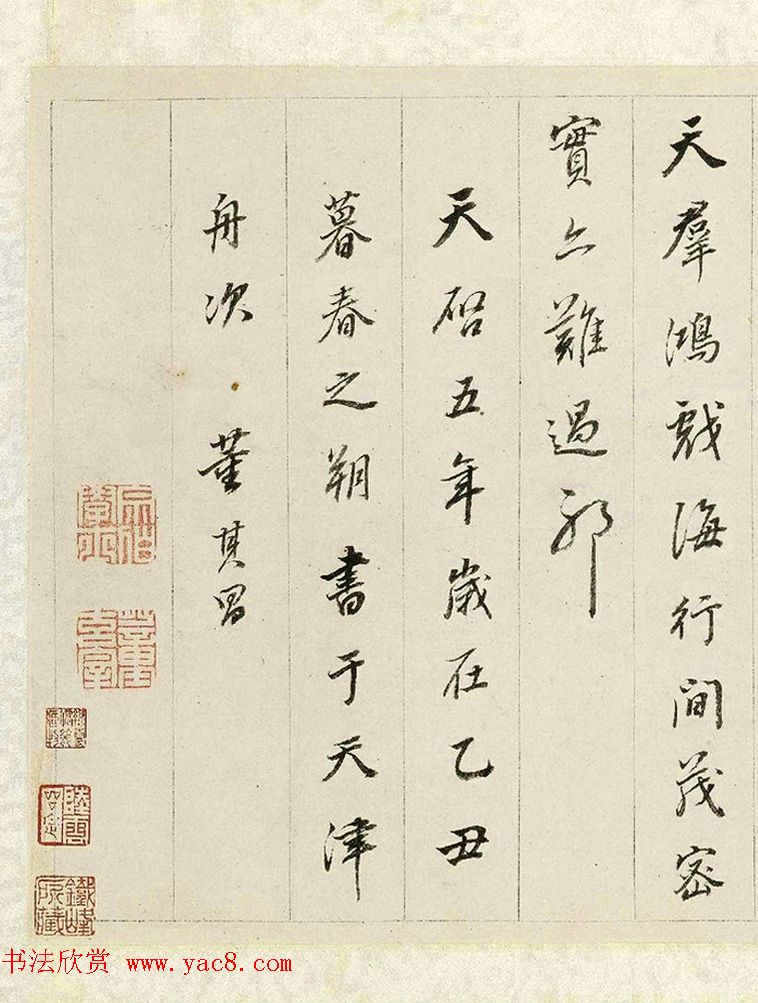 天羣鴻戲海行間茂密
實亦難過耶
天启五年歲在乙丑
暮春之朔書于天津
舟次 董其昌
书法欣赏 www.yac8.com